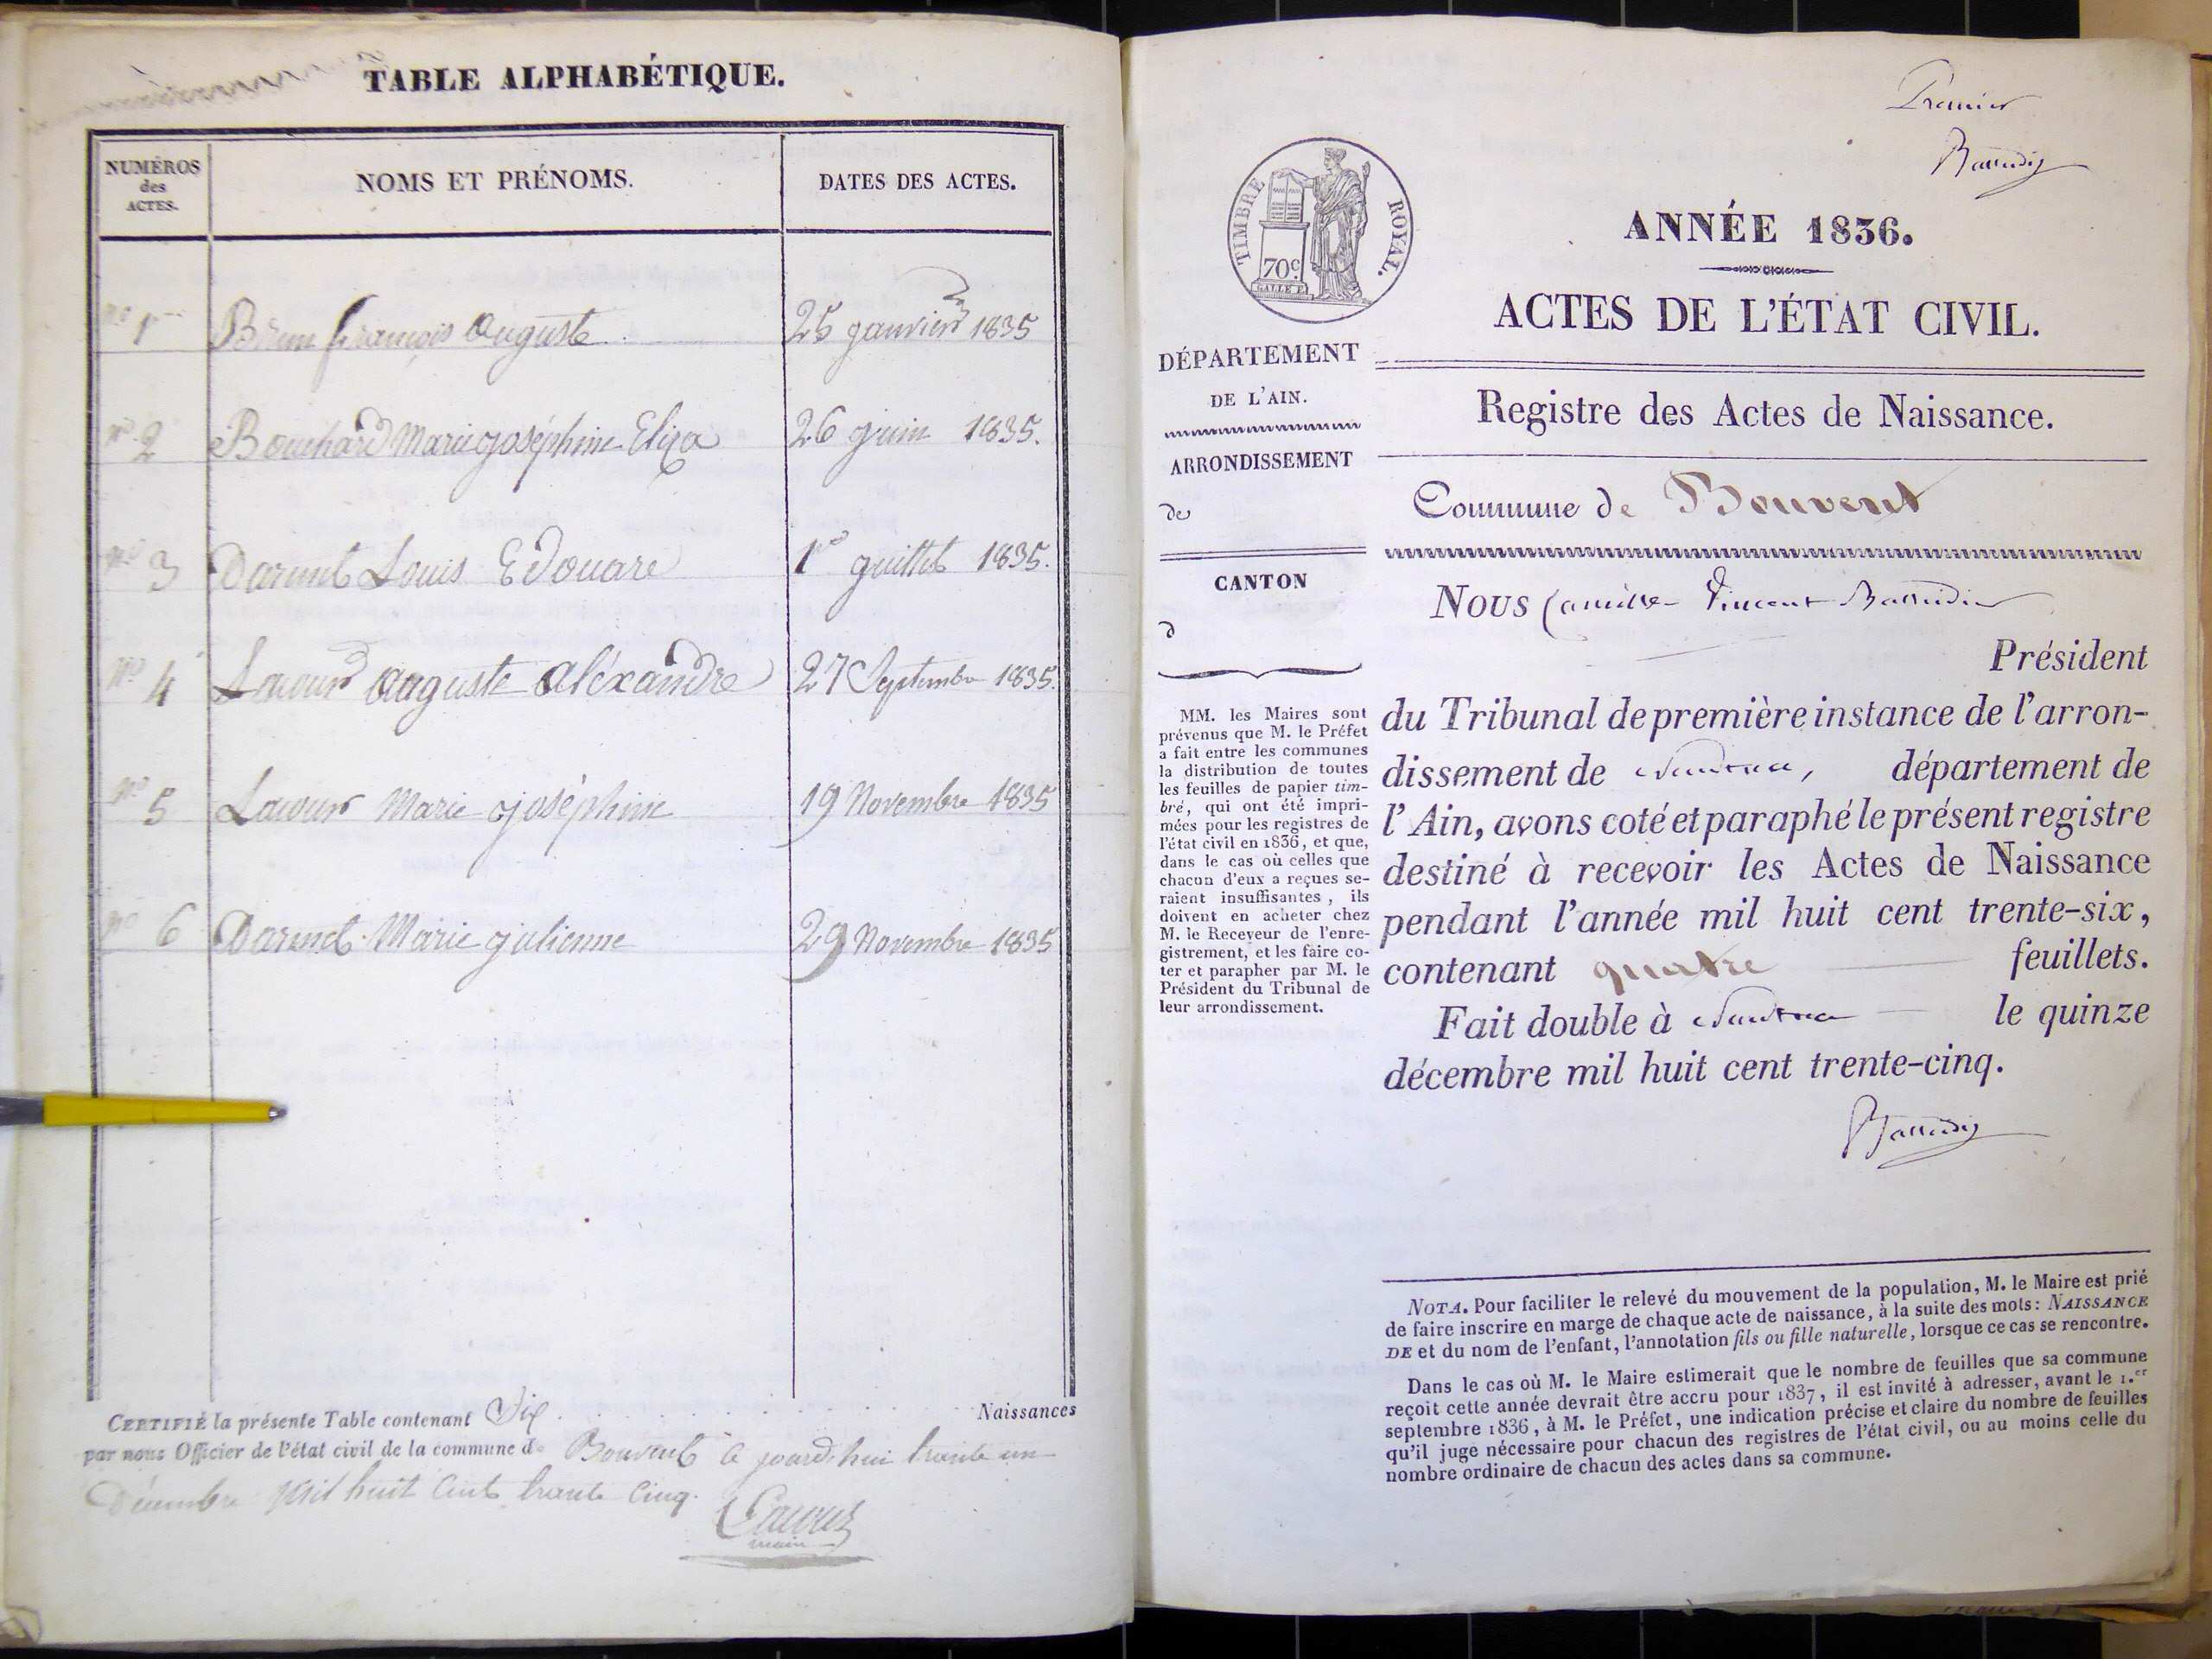 TABLE ALPHABÉTIQUE.
NUMÉROS
des
ACTES.
NOMS ET PRÉNOMS.
DATES DES ACTES.
nº 1er François auguste 25 janvier 1835
nº 2 Bouchard Marie joséphine Eliza 26 juin 1835.
nº 3 Darmet Louis Edouare 1er juillet 1835.
nº 4 Lacour auguste aléxandre 27 Septembre 1835.
nº 5 Lacour Marie joséphine 19 Novembre 1835
nº 6 Darmet Marie julienne 29 Novembre 1835
CERTIFIÉ la présente Table contenant Six Naissances
par nous Officier de l'état civil de la commune de Bouvent ce jourd'hui trante un
Décembre Mil huit Cent trante Cinq.
maire
Premier
TIMBRE ROYAL.
70c.
ANNÉE 1836.
ACTES DE L'ÉTAT CIVIL.
Registre des Actes de Naissance.
Commune de Bouvent
DÉPARTEMENT
DE L'AIN.
ARRONDISSEMENT
de
CANTON
d
MM. les Maires sont
prévenus que M. le Préfet
a fait entre les communes
la distribution de toutes
les feuilles de papier tim-
bré, qui ont été impri-
mées pour les registres de
l'état civil en 1836, et que,
dans le cas où celles que
chacun d'eux a reçues se-
raient insuffisantes, ils
doivent en acheter chez
M. le Receveur de l'enre-
gistrement, et les faire co-
ter et parapher par M. le
Président du Tribunal de
leur arrondissement.
NOUS Camille Vincent
Président
du Tribunal de première instance de l'arron-
dissement de Nantua, département de
l'Ain, avons coté et paraphé le présent registre
destiné à recevoir les Actes de Naissance
pendant l'année mil huit cent trente-six,
contenant quatre feuillets.
Fait double à Nantua le quinze
décembre mil huit cent trente-cinq.
NOTA. Pour faciliter le relevé du mouvement de la population, M. le Maire est prié
de faire inscrire en marge de chaque acte de naissance, à la suite des mots: NAISSANCE
DE et du nom de l'enfant, l'annotation fils ou fille naturelle, lorsque ce cas se rencontre.
Dans le cas où M. le Maire estimerait que le nombre de feuilles que sa commune
reçoit cette année devrait être accru pour 1837, il est invité à adresser, avant le 1.er
septembre 1836, à M. le Préfet, une indication précise et claire du nombre de feuilles
qu'il juge nécessaire pour chacun des registres de l'état civil, ou au moins celle du
nombre ordinaire de chacun des actes dans sa commune.